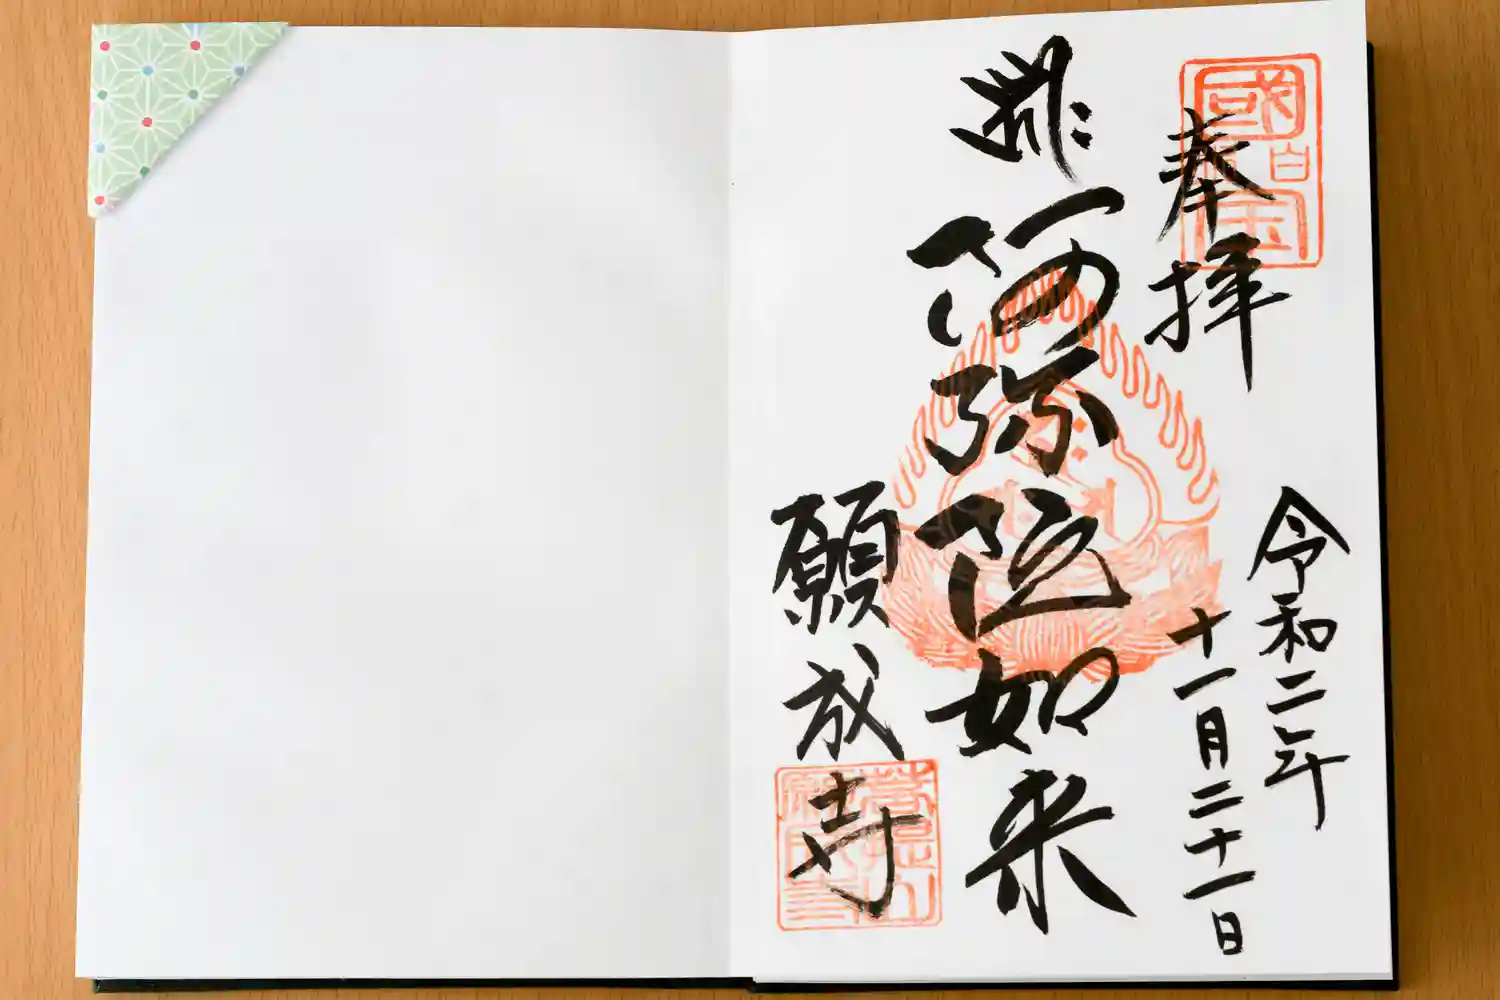 奉拝
國宝
白
令和二年
十一月二十一日
阿弥陀如来
願成寺